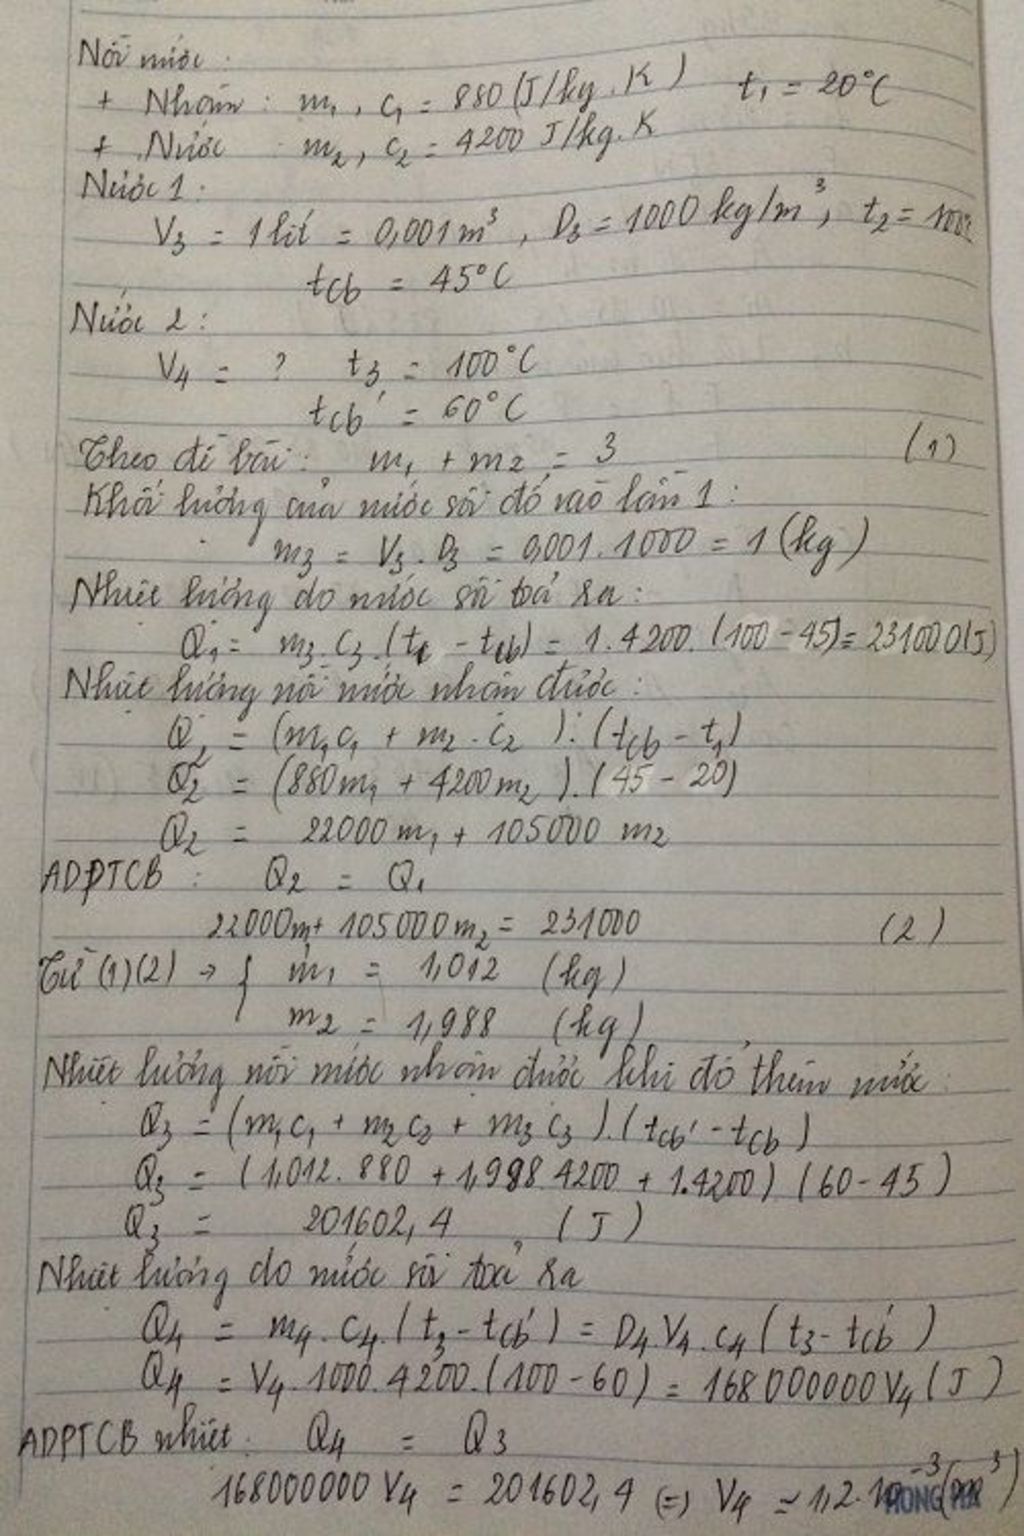 Nồi nước :
+ Nhôm : m₁, c₁ = 880 (J/kg.K) t₁ = 20°C
+ Nước : m₂, c₂ = 4200 J/kg.K
Nước 1 :
V₃ = 1 lít = 0,001 m³, D₃ = 1000 kg/m³, t₂ = 100
tcb = 45°C
Nước 2 :
V₄ = ? t₃ = 100°C
tcb' = 60°C
Theo đề bài : m₁ + m₂ = 3 (1)
Khối lượng của nước sôi đổ vào lần 1 :
m₃ = V₃. D₃ = 0,001. 1000 = 1 (kg)
Nhiệt lượng do nước sôi toả ra :
Q₁ = m₃. c₃. (t₂ - tcb) = 1. 4200. (100 - 45) = 231000 (J)
Nhiệt lượng nồi nước nhận được :
Q₂ = (m₁c₁ + m₂. c₂ ). (tcb - t₁)
Q₂ = (880m₁ + 4200m₂ ). (45 - 20)
Q₂ = 22000 m₁ + 105000 m₂
ADPTCB : Q₂ = Q₁
22000m+ 105000m₂ = 231000 (2)
Từ (1)(2) → { m₁ = 1,012 (kg)
m₂ = 1,988 (kg)
Nhiệt lượng nồi nước nhận được khi đổ thêm nước :
Q₃ = (m₁c₁ + m₂c₂ + m₃c₃ ). (tcb' - tcb )
Q₃ = (1,012. 880 + 1,988.4200 + 1.4200) (60 - 45)
Q₃ = 201602,4 (J)
Nhiệt lượng do nước sôi toả ra
Q₄ = m₄. c₄. (t₃ - tcb') = D₄.V₄.c₄ (t₃ - tcb')
Q₄ = V₄. 1000. 4200. (100 - 60) = 168000000 V₄ (J)
ADPTCB nhiệt : Q₄ = Q₃
168000000 V₄ = 201602,4 (=) V₄ ≈ 1,2.10⁻³ (m³)